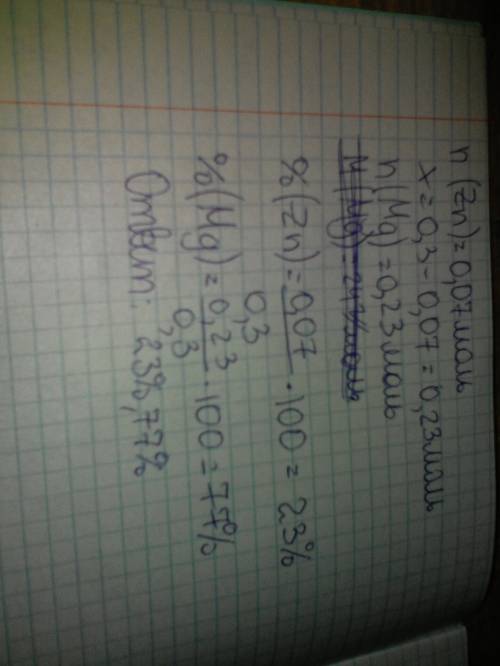 n (Zn) = 0,07 моль
x = 0,3 - 0,07 = 0,23 моль
n (Mg) = 0,23 моль
% (Zn) = 0,07 / 0,3 · 100 = 23%
% (Mg) = 0,23 / 0,3 · 100 = 77%
Ответ: 23%, 77%